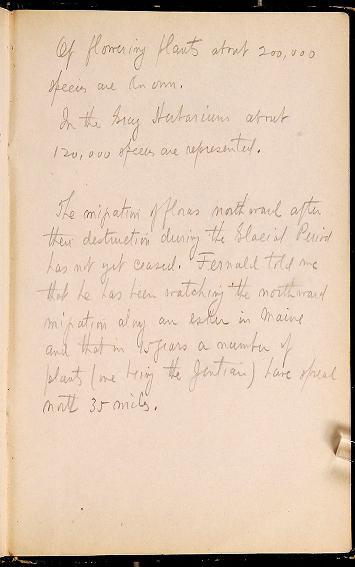 Of flowering plants about 200,000
species are known.
In the Gray Herbarium about
120,000 species are represented.
The migration of floras northward after
their destruction during the Glacial Period
has not yet ceased. Fernald told me
that he has been watching the northward
migration along an esker in Maine
and that in 15 years a number of
plants (one being the Gentian) have spread
north 35 miles.